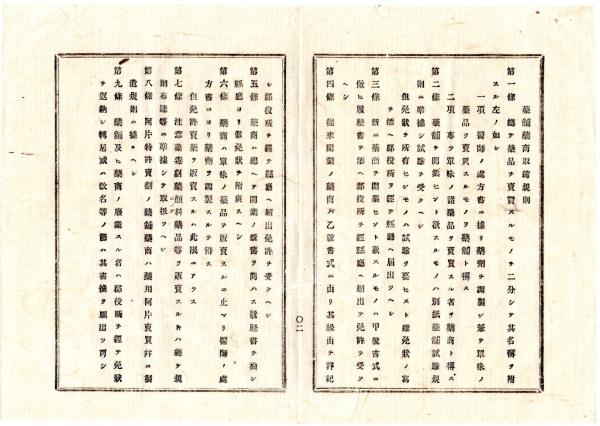 藥舖藥商取締規則
第一條 總テ藥品ヲ賣買スルモノヲ二分シテ其名稱ヲ附
スル左ノ如シ
一項 醫師ノ處方書ニ據リ藥劑ヲ調製シ兼テ單味ノ
藥品ヲ賣買スルモノヲ藥舖ト稱ス
二項 專ラ單味ノ諸藥品ヲ賣買スル者ヲ藥商ト稱ス
第二條 藥舖ヲ開業セント欲スルモノハ別紙藥舖試驗規
則ニ準據シ試驗ヲ受クヘシ
但免狀ヲ所有セシモノハ試驗ヲ要セスト雖免狀ノ寫
ヲ添ヘ郡役所ヲ經テ縣廳ヘ屆出ツヘシ
第三條 新ニ藥商ヲ開業セント欲スルモノハ甲號書式ニ
倣ヒ履歷書ヲ添ヘ郡役所ヲ經縣廳ヘ願出テ免許ヲ受ク
ヘシ
第四條 從來開業ノ藥商ハ乙號書式ニ由リ其緣由ヲ詳記
〇二
シ郡役所ヲ經テ縣廳ヘ願出免許ヲ受クヘシ
第五條 藥商ハ總ヘテ開業ノ新舊ヲ問ハス履歷書ヲ檢シ
縣廳ヨリ免狀ヲ附與スヘシ
第六條 藥商ハ單味ノ藥品ヲ販賣スルニ止マリ醫師ノ處
方書ニヨリ藥劑ヲ調製スルヲ得ス
但免許賣藥ヲ販賣スルハ此限ニアラス
第七條 注意毒劇藥顏料藥品等ヲ販賣スルトキハ總テ規
則布達等ニ準據シテ取扱フヘシ
第八條 阿片特許賣捌ノ藥舖藥商ハ藥用阿片賣買幷ニ製
造規則ニ據ルヘシ
第九條 藥舖及ヒ藥商ノ廢業スル者ハ郡役所ヲ經テ免狀
ヲ返納シ轉居或ハ改名等ノ節ハ其書換ヲ願出ツ可シ